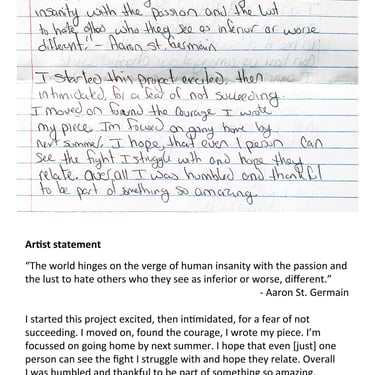 insanity with the passion and the lust
to hate others who they see as inferior or worse
different." - Aaron St. Germain
I started this project excited, then
intimidated, for a fear of not succeeding.
I moved on found the courage I wrote
my piece. I'm focused on going home by
next summer. I hope that even 1 person can
see the fight I struggle with and hope they
relate. Overall I was humbled and thankful
to be part of something so amazing.
Artist statement
“The world hinges on the verge of human insanity with the passion and
the lust to hate others who they see as inferior or worse, different.”
- Aaron St. Germain
I started this project excited, then intimidated, for a fear of not
succeeding. I moved on, found the courage, I wrote my piece. I’m
focussed on going home by next summer. I hope that even [just] one
person can see the fight I struggle with and hope they relate. Overall
I was humbled and thankful to be part of something so amazing.